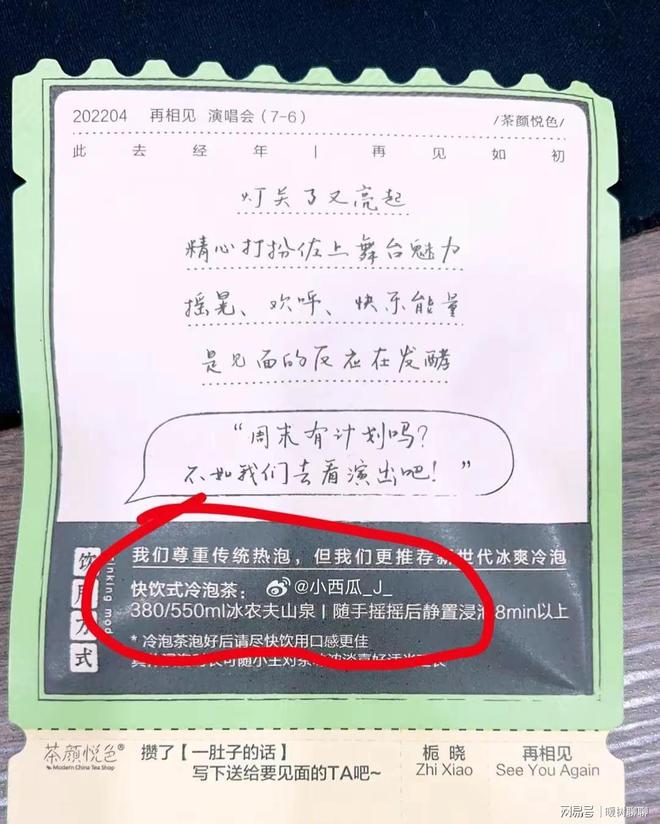 202204 再相见 演唱会(7-6) /茶颜悦色/
此去经年|再见如初
灯关了又亮起
精心打扮佐上舞台魅力
摇晃、欢呼、快乐能量
是见面的反应在发酵
“周末有计划吗?
不如我们去看演出吧!”
饮用方式
我们尊重传统热泡，但我们更推荐新世代冰爽冷泡
快饮式冷泡茶:
@小西瓜_J_
380/550ml冰农夫山泉|随手摇摇后静置浸泡8min以上
*冷泡茶泡好后请尽快饮用口感更佳
茶颜悦色®
Modern China Tea Shop
攒了【一肚子的话】
写下送给要见面的TA吧~
栀晓
Zhi Xiao
再相见
See You Again
网易号|暖树聊聊